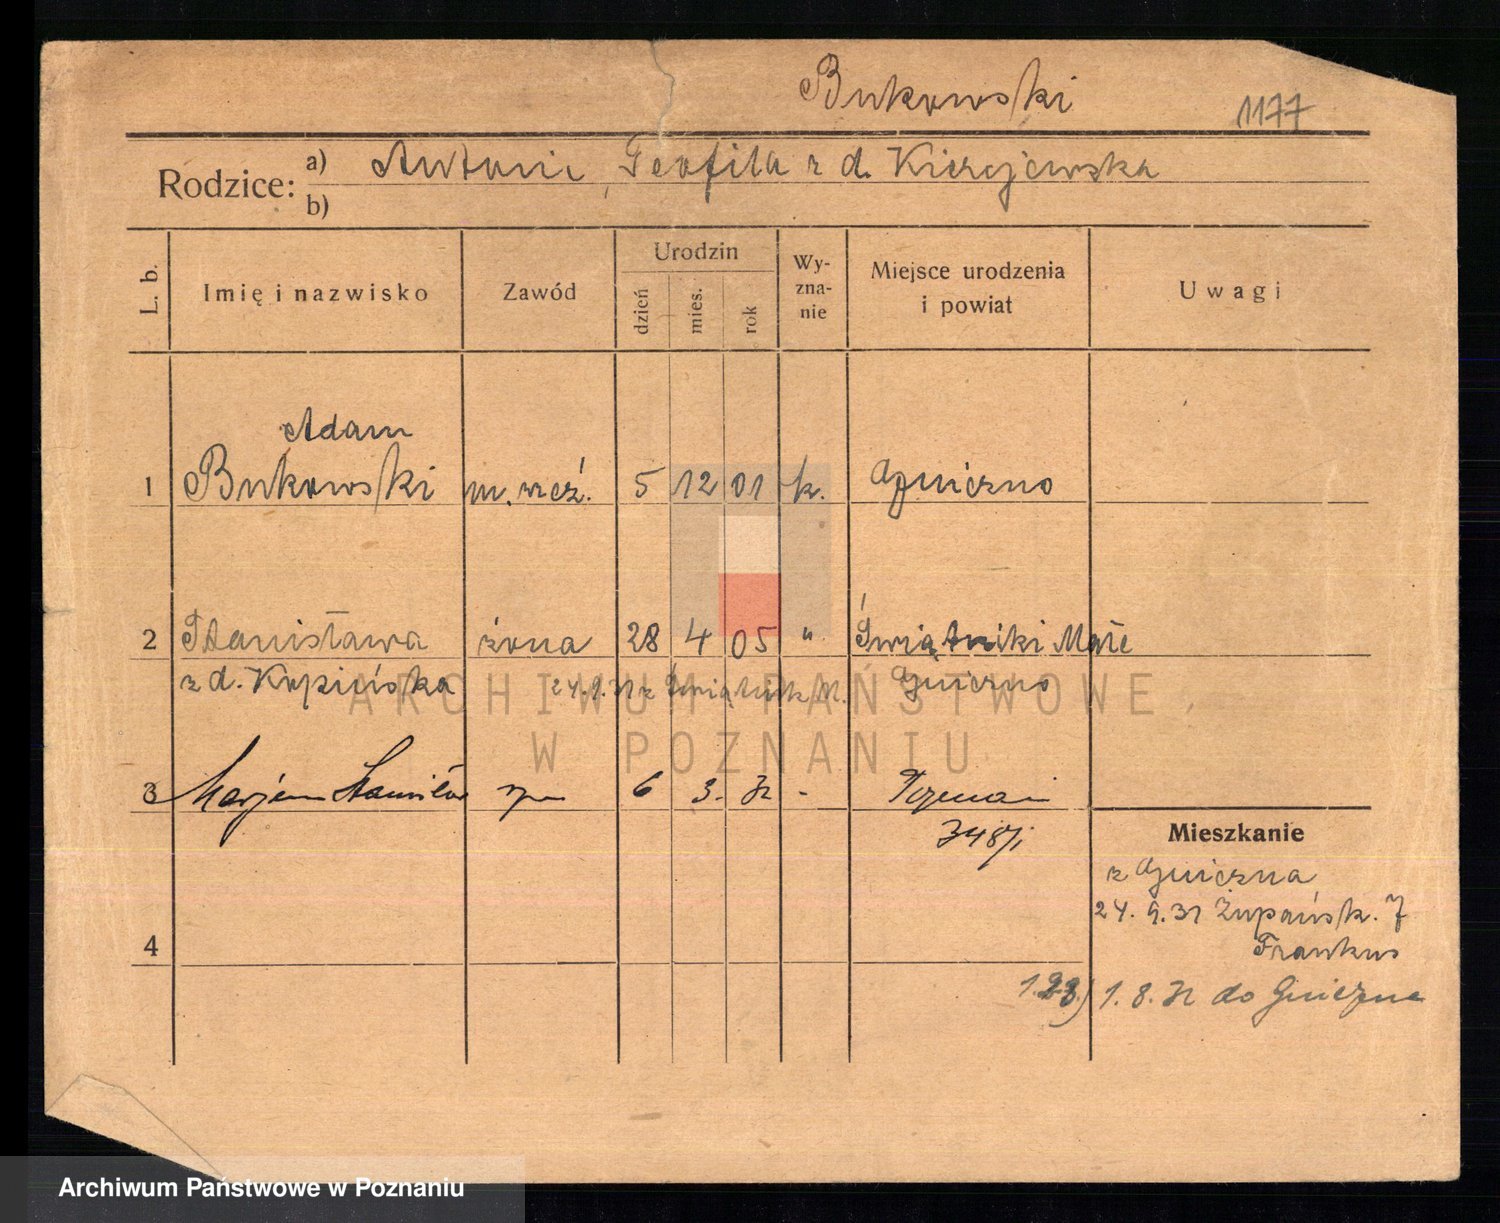 Bukowski
1177
Rodzice: a) Antoni, Teofila z d. Kierejewska
b)
L. b.
Imię i nazwisko
Zawód
Urodzin
dzień
mies.
rok
Wy-
zna-
nie
Miejsce urodzenia
i powiat
Uwagi
Adam
1 Bukowski m. rzeź. 5 12 01 k. Gniezno
2 Stanisława żona 28 4 05 " Świątniki Małe
z d. Kopicińska 24.9.31 z Świątnik M. Gniezno
ARCHIWUM PAŃSTWOWE
W POZNANIU
3 Marjan Stanisław syn 6 3. 32 - Poznań
348/i
Mieszkanie
z Gniezna
24. 9. 31 Żupańsk. 7
4
1. 8. 32 do Gniezna
Archiwum Państwowe w Poznaniu